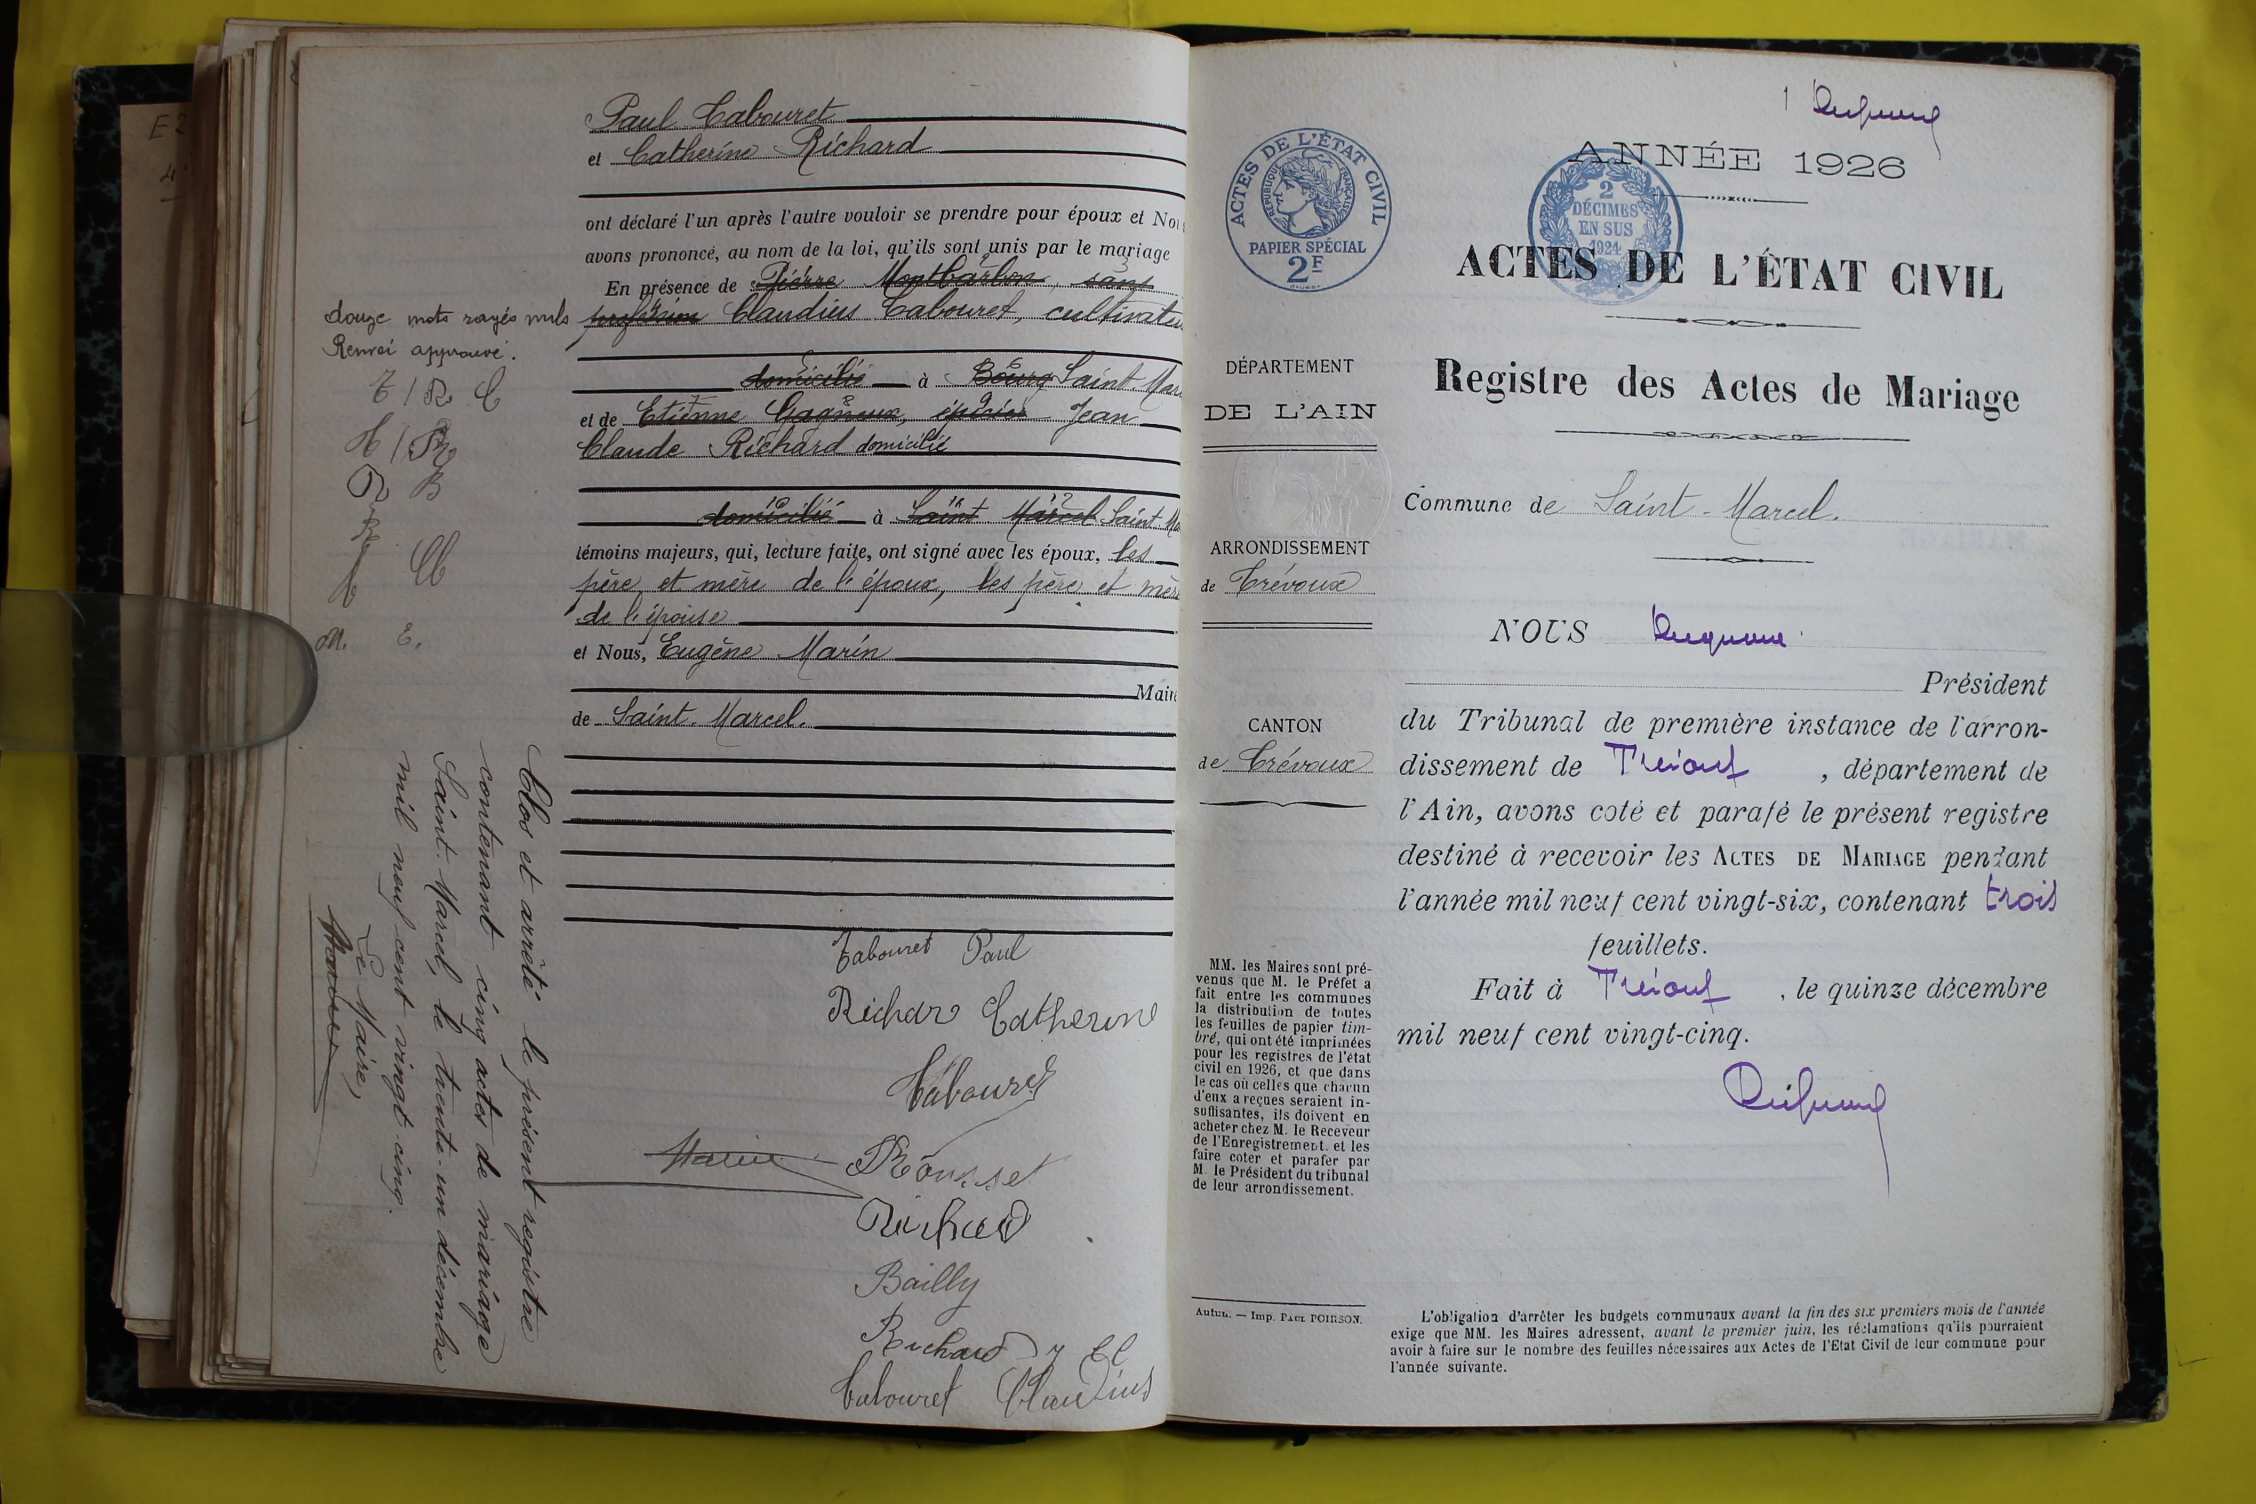 Paul Cabouret
et Catherine Richard
ont déclaré l'un après l'autre vouloir se prendre pour époux et Nou
avons prononcé, au nom de la loi, qu'ils sont unis par le mariage
En présence de Pierre Montbarbon, sans
profession Claudius Cabouret, cultivateu
domicilié à Bourg Saint-Mar
et de Etienne Gagneux, épicier Jean
Claude Richard domicilié
domicilié à Saint Marcel Saint-Ma
témoins majeurs, qui, lecture faite, ont signé avec les époux, les
père et mère de l'époux, les père et mère
de l'épouse
et Nous, Eugène Marin
Maire
de Saint-Marcel.
douze mots rayés nuls
Renvoi approuvé.
M. E.
Cabouret Paul
Richard Catherine
Cabouret
Marin
Rousset
Richard
Bailly
Richard
Cabouret Claudius
Clos et arrêté le présent registre
contenant cinq actes de mariage
Saint-Marcel, le trente-un décembre
mil neuf cent vingt-cinq.
Le Maire,
Marin
E 2
1
ANNÉE 1926
ACTES DE L'ÉTAT CIVIL
RÉPUBLIQUE FRANÇAISE
PAPIER SPÉCIAL
2F
2
DÉCIMES
EN SUS
1924
ACTES DE L'ÉTAT CIVIL
Registre des Actes de Mariage
Commune de Saint-Marcel.
DÉPARTEMENT
DE L'AIN
ARRONDISSEMENT
de Trévoux
CANTON
de Trévoux
MM. les Maires sont pré-
venus que M. le Préfet a
fait entre les communes
la distribution de toutes
les feuilles de papier tim-
bré, qui ont été imprimées
pour les registres de l'état
civil en 1926, et que dans
le cas où celles que chacun
d'eux a reçues seraient in-
suffisantes, ils doivent en
acheter chez M. le Receveur
de l'Enregistrement, et les
faire coter et parafer par
M. le Président du tribunal
de leur arrondissement.
Autun. — Imp. Paul POIRSON.
NOUS
Président
du Tribunal de première instance de l'arron-
dissement de Trévoux, département de
l'Ain, avons coté et parafé le présent registre
destiné à recevoir les ACTES DE MARIAGE pendant
l'année mil neuf cent vingt-six, contenant trois
feuillets.
Fait à Trévoux, le quinze décembre
mil neuf cent vingt-cinq.
L'obligation d'arrêter les budgets communaux avant la fin des six premiers mois de l'année
exige que MM. les Maires adressent, avant le premier juin, les réclamations qu'ils pourraient
avoir à faire sur le nombre des feuilles nécessaires aux Actes de l'Etat Civil de leur commune pour
l'année suivante.